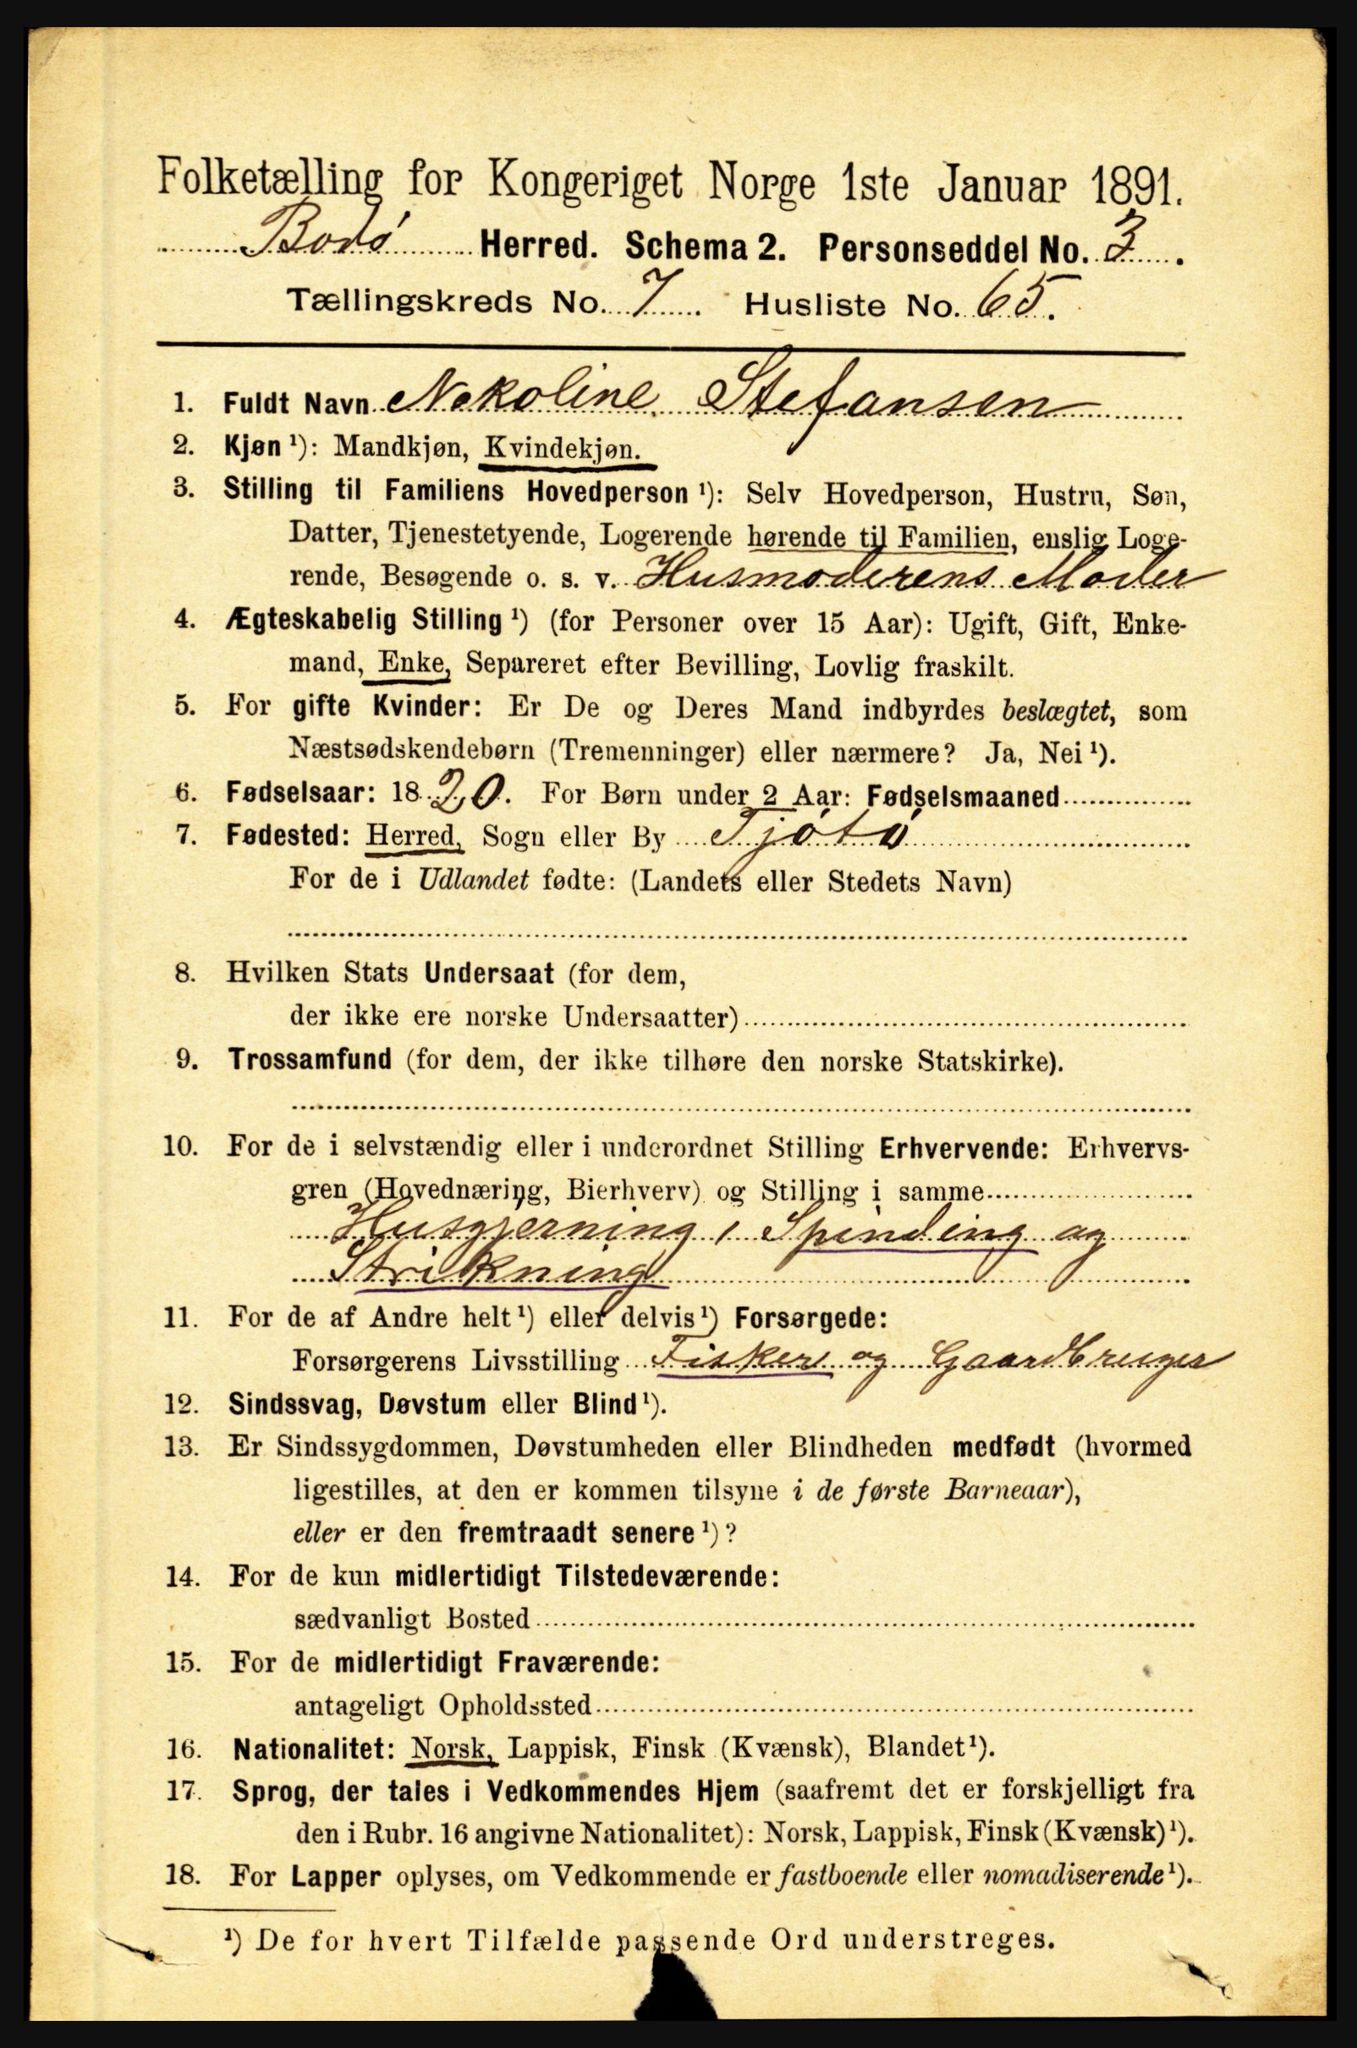 Folketælling for Kongeriget Norge 1ste Januar 1891.
Bodø Herred. Schema 2. Personseddel No. 3.
Tællingskreds No. 7. Husliste No. 65.
1. Fuldt Navn Nekoline Stefansen
2. Kjøn ¹): Mandkjøn, Kvindekjøn.
3. Stilling til Familiens Hovedperson ¹): Selv Hovedperson, Hustru, Søn,
Datter, Tjenestetyende, Logerende hørende til Familien, enslig Loge-
rende, Besøgende o. s. v. Husmoderens Moder
4. Ægteskabelig Stilling ¹) (for Personer over 15 Aar): Ugift, Gift, Enke-
mand, Enke, Separeret efter Bevilling, Lovlig fraskilt.
5. For gifte Kvinder: Er De og Deres Mand indbyrdes beslægtet, som
Næstsødskendebørn (Tremenninger) eller nærmere? Ja, Nei ¹).
6. Fødselsaar: 1820. For Børn under 2 Aar: Fødselsmaaned
7. Fødested: Herred, Sogn eller By Tjøtø
For de i Udlandet fødte: (Landets eller Stedets Navn)
8. Hvilken Stats Undersaat (for dem,
der ikke ere norske Undersaatter)
9. Trossamfund (for dem, der ikke tilhøre den norske Statskirke).
10. For de i selvstændig eller i underordnet Stilling Erhvervende: Erhvervs-
gren (Hovednæring, Bierhverv) og Stilling i samme
Husgjerning, Spinding og
Strikning
11. For de af Andre helt ¹) eller delvis ¹) Forsørgede:
Forsørgerens Livsstilling Fisker og Gaardbruger
12. Sindssvag, Døvstum eller Blind ¹).
13. Er Sindssygdommen, Døvstumheden eller Blindheden medfødt (hvormed
ligestilles, at den er kommen tilsyne i de første Barneaar),
eller er den fremtraadt senere ¹)?
14. For de kun midlertidigt Tilstedeværende:
sædvanligt Bosted
15. For de midlertidigt Fraværende:
antageligt Opholdssted
16. Nationalitet: Norsk, Lappisk, Finsk (Kvænsk), Blandet ¹).
17. Sprog, der tales i Vedkommendes Hjem (saafremt det er forskjelligt fra
den i Rubr. 16 angivne Nationalitet): Norsk, Lappisk, Finsk (Kvænsk) ¹).
18. For Lapper oplyses, om Vedkommende er fastboende eller nomadiserende ¹).
¹) De for hvert Tilfælde passende Ord understreges.